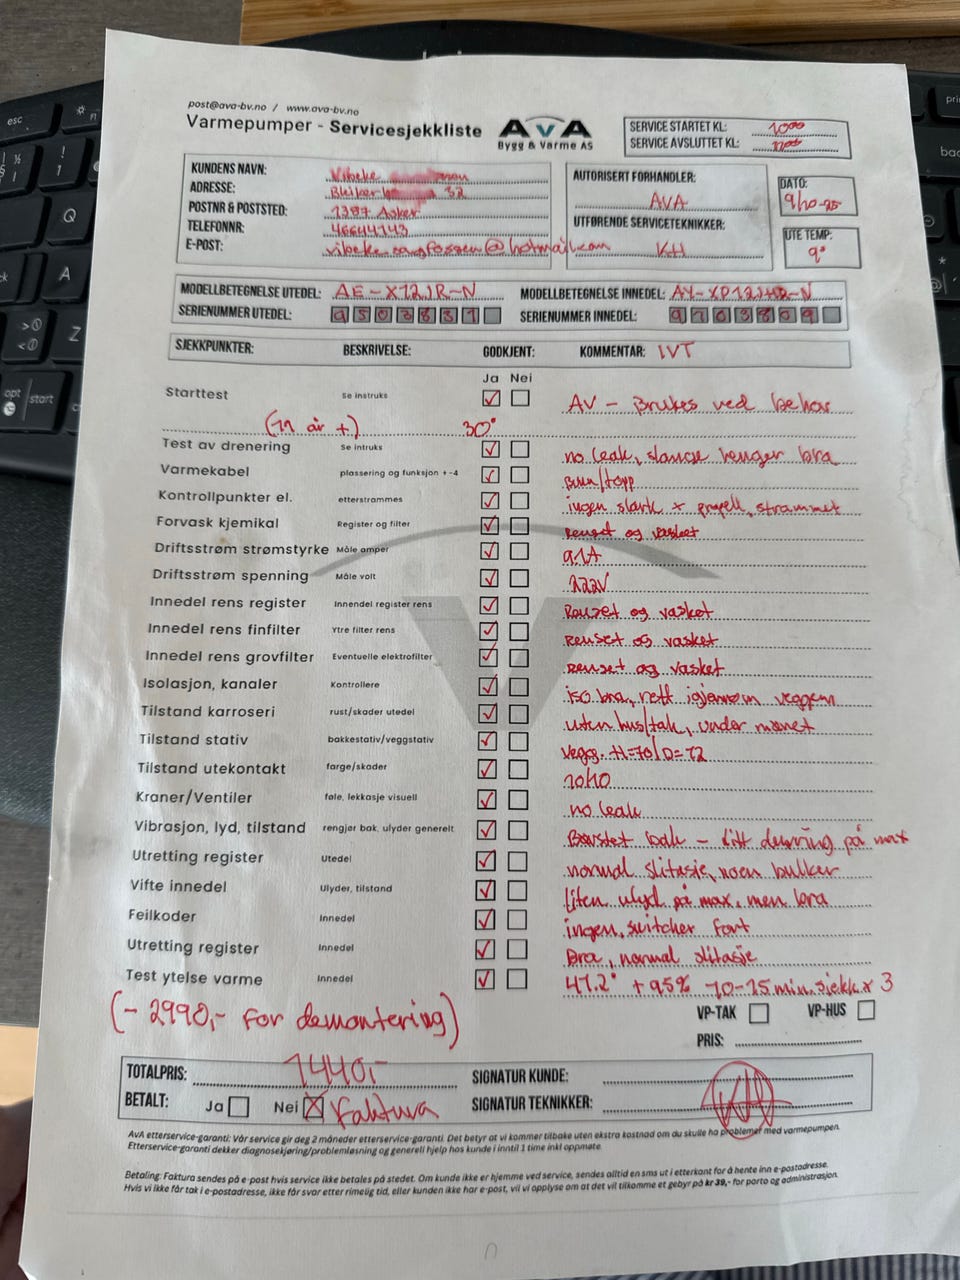 post@ava-bv.no / www.ava-bv.no
Varmepumper - Servicesjekkliste
AvA
Bygg & Varme AS
SERVICE STARTET KL: 10⁰⁰
SERVICE AVSLUTTET KL: 11⁰⁰
KUNDENS NAVN: Vibeke
ADRESSE: 32
POSTNR & POSTSTED: 1387 Asker
TELEFONNR: 46644143
E-POST: @hotmail.com
AUTORISERT FORHANDLER:
AVA
UTFØRENDE SERVICETEKNIKKER:
KH
DATO:
9/10-25
UTE TEMP:
9°
MODELLBETEGNELSE UTEDEL: AE-X12JR-N
MODELLBETEGNELSE INNEDEL: AY-XP12JHR-N
SERIENUMMER UTEDEL:
SERIENUMMER INNEDEL:
SJEKKPUNKTER: BESKRIVELSE: GODKJENT: KOMMENTAR: IVT
Ja Nei
Starttest Se instruks AV - Brukes ved behov
30°
Test av drenering Se intruks no leak, slange henger bra
Varmekabel plassering og funksjon +-4 Bunn/topp
Kontrollpunkter el. etterstrammes ingen slark x propell, strammet
Forvask kjemikal Register og filter renset og vasket
Driftsstrøm strømstyrke Måle amper
Driftsstrøm spenning Måle volt 222V
Innedel rens register Innendel register rens Renset og vasket
Innedel rens finfilter Ytre filter rens renset og vasket
Innedel rens grovfilter Eventuelle elektrofilter renset og vasket
Isolasjon, kanaler Kontrollere iso bra, rett igjennom veggen
Tilstand karroseri rust/skader utedel uten hus/tak, under mønet
Tilstand stativ bakkestativ/veggstativ vegg.
Tilstand utekontakt farge/skader 10/10
Kraner/Ventiler føle, lekkasje visuell no leak
Vibrasjon, lyd, tilstand rengjør bak, ulyder generelt Børstet bak - litt durring på max
Utretting register Utedel normal slitasje, noen bulker
Vifte innedel Ulyder, tilstand liten ulyd på max, men bra
Feilkoder Innedel ingen, switcher fort
Utretting register Innedel Bra, normal slitasje
Test ytelse varme Innedel 47.2° + 95% 10-15 min. sjekk x 3
(- 2990,- for demontering)
VP-TAK VP-HUS
PRIS:
TOTALPRIS: 1440,-
BETALT: Ja Nei Faktura
SIGNATUR KUNDE:
SIGNATUR TEKNIKKER: KH
AvA etterservice-garanti: Vår service gir deg 2 måneder etterservice-garanti. Det betyr at vi kommer tilbake uten ekstra kostnad om du skulle ha problemer med varmepumpen.
Etterservice-garanti dekker diagnosekjøring/problemløsning og generell hjelp hos kunde i inntil 1 time inkl oppmøte.
Betaling: Faktura sendes på e-post hvis service ikke betales på stedet. Om kunde ikke er hjemme ved service, sendes alltid en sms ut i etterkant for å hente inn e-postadresse.
Hvis vi ikke får tak i e-postadresse, ikke får svar etter rimelig tid, eller kunden ikke har e-post, vil vi opplyse om at det vil tilkomme et gebyr på kr 39,- for porto og administrasjon.